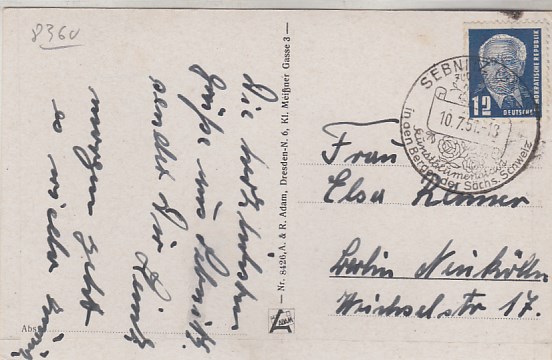 836v
Die herzlichsten
Grüße aus Sebnitz.
sendet Dir Heinz
morgen geht
es wieder
Abs.
Nr. 8426, A. & R. Adam, Dresden-N. 6, Kl. Meißner Gasse 3
ADAM
SEBNITZ
10.7.51.-18
Kunstblumenstadt
in den Bergen der Sächs. Schweiz
12
DEUTSCHE
DEMOKRATISCHE REPUBLIK
Frau
Elsa Renner
Berlin Neukölln
Weichselstr. 17.